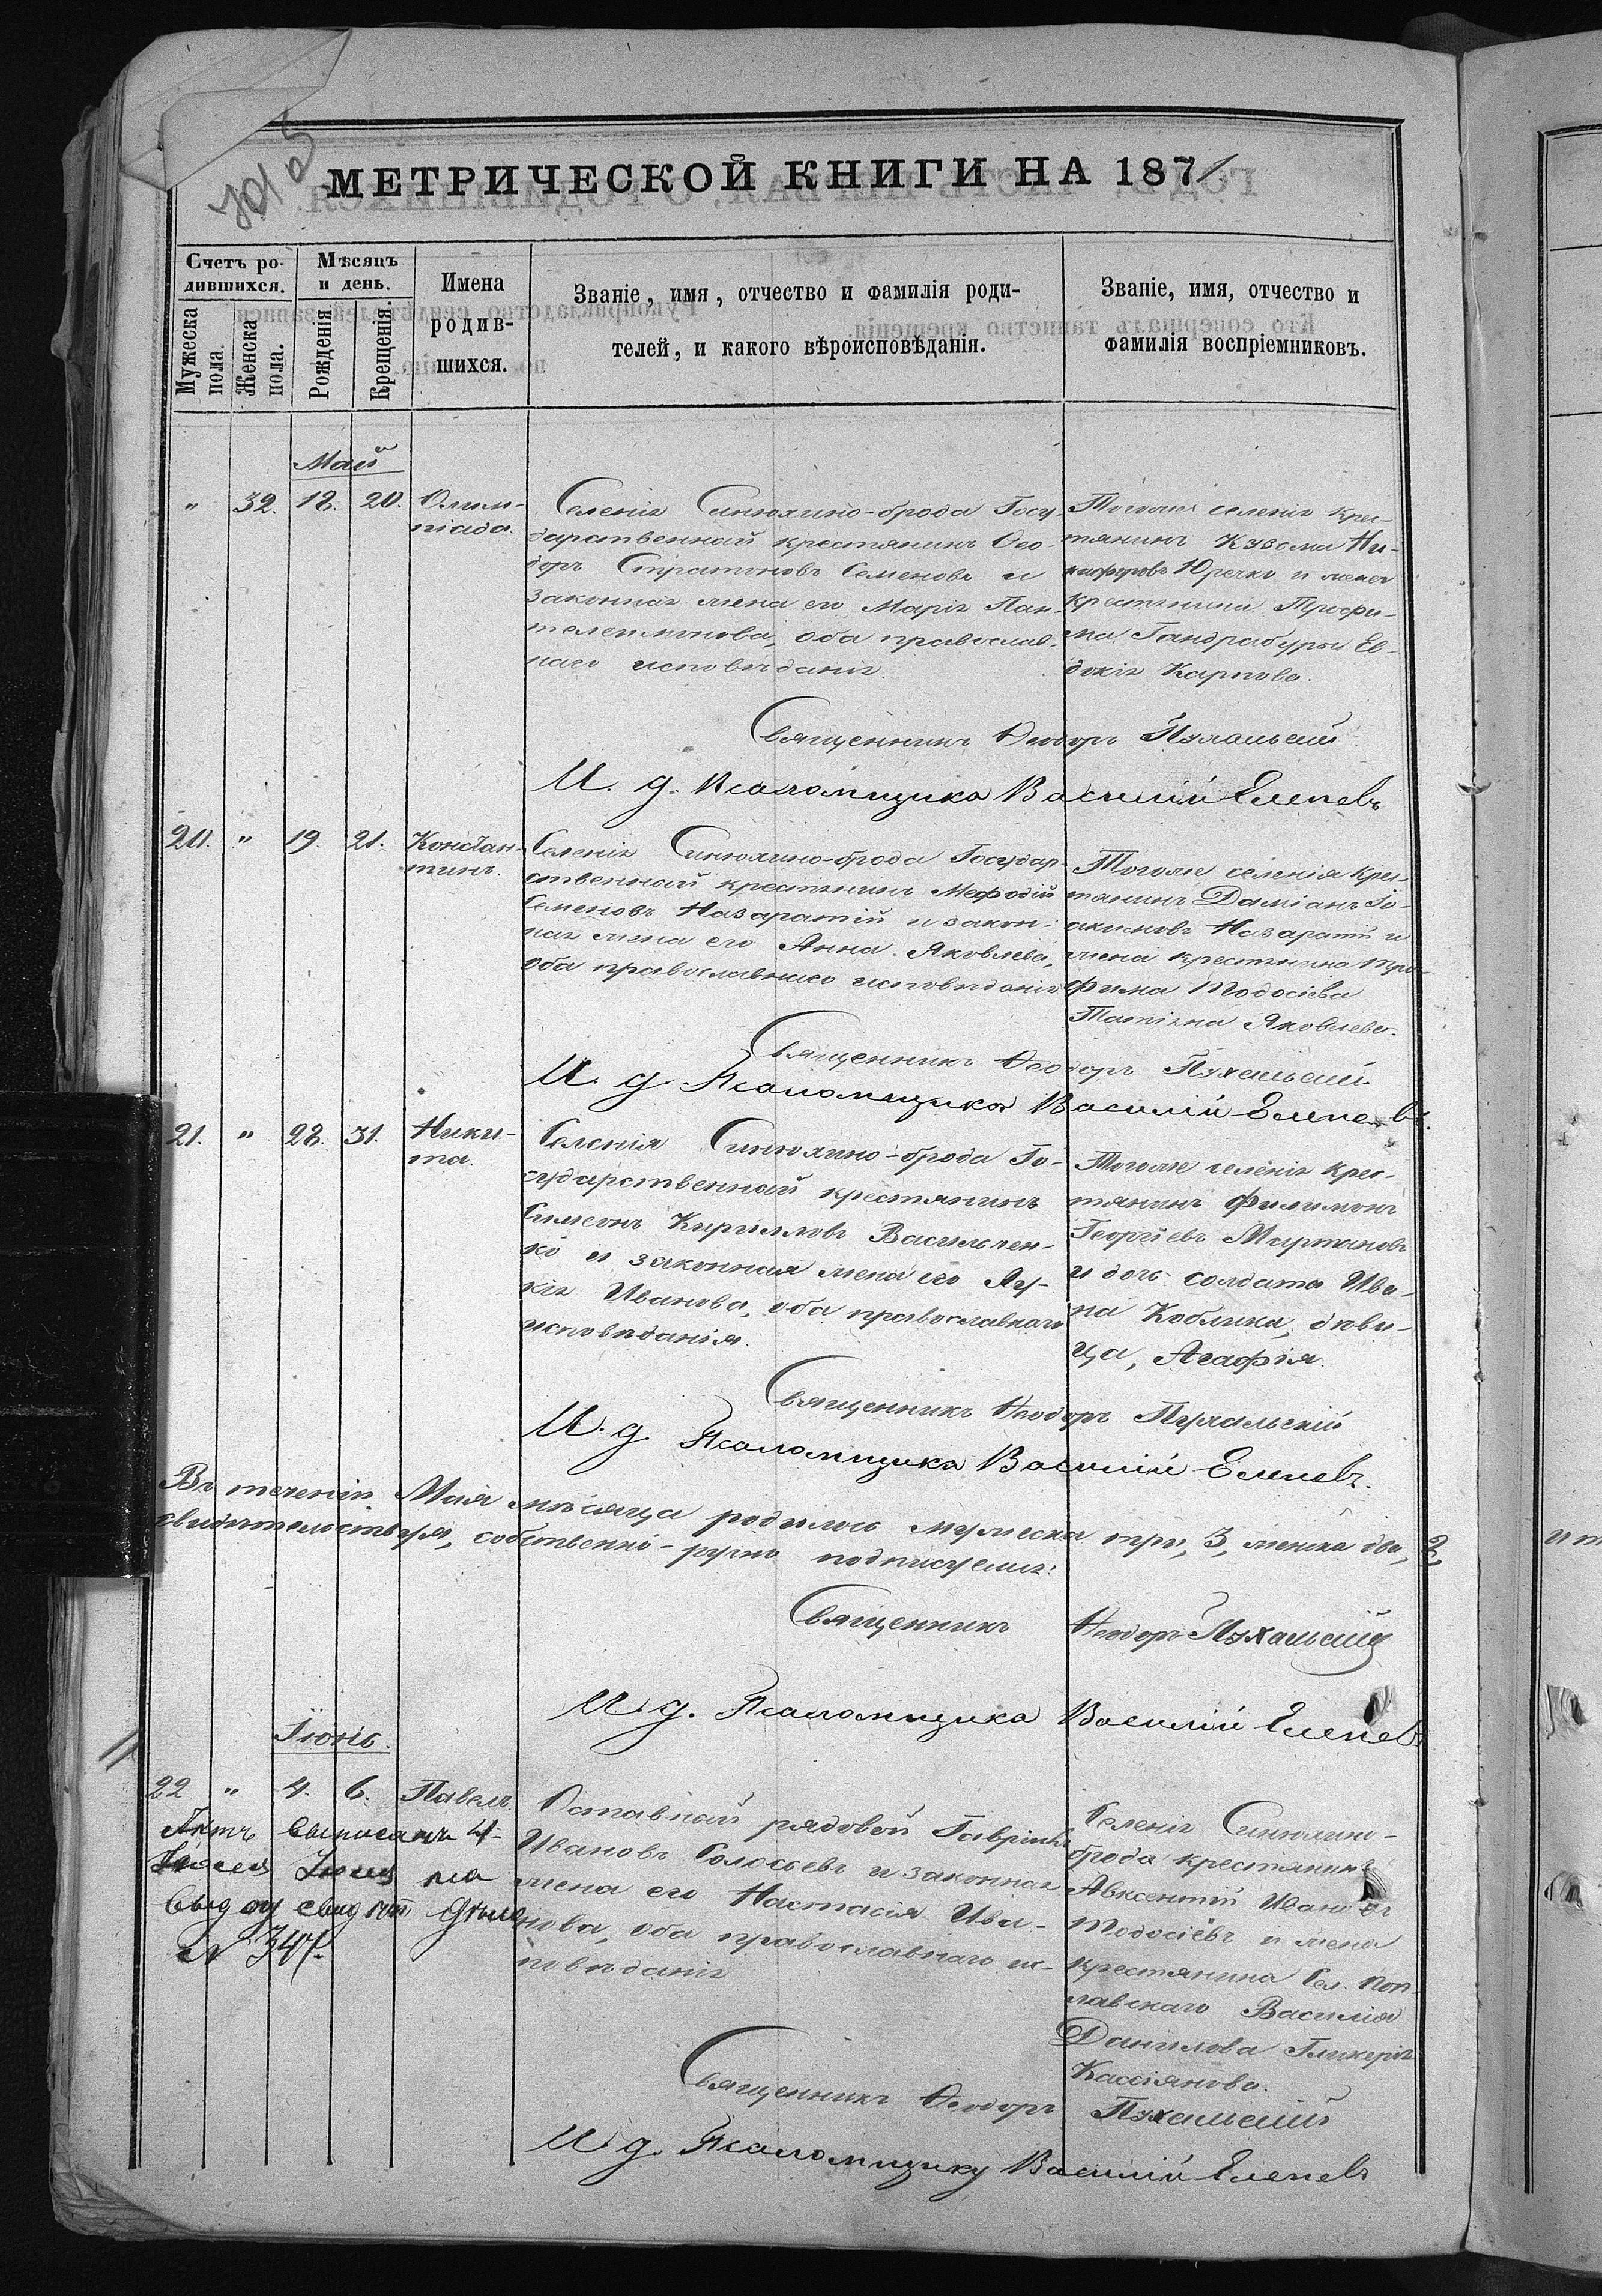 МЕТРИЧЕСКОЙ КНИГИ НА 1871
Счетъ ро-
дившихся.
Мѣсяцъ
и день.
Имена
родив-
шихся.
Званіе, имя, отчество и фамилія роди-
телей, и какого вѣроисповѣданія.
Званіе, имя, отчество и
фамилія воспріемниковъ.
Мужеска
пола.
Женска
пола.
Рожденія.
Крещенія.
Май
" 32. 18. 20. Олим-
піада.
Селенія Синюхино-брода Госу-
дарственный крестянинъ Ѳео-
доръ Стратоновъ Семеновъ и
законная жена его Марія Пан-
телеимонова, оба православ-
наго исповѣданія.
Тогоже селенія крес-
тянинъ Кузома Ни-
кифоровъ Юречко и жена
крестянина Трофи-
ма Гандрабуры Ев-
докія Карпова.
Священникъ Ѳеодоръ Пухальскій
И. д. Псаломщика Василій Елепевъ
20. " 19. 21. Констан-
тинъ.
Селенія Синюхино-брода Государ-
ственный крестянинъ Мефодій
Семеновъ Назаратій и закон-
ная жена его Анна Яковлева,
оба православнаго исповѣданія
Тогоже селенія крес-
тянинъ Даміанъ Іо-
акимовъ Назаратій и
жена крестянина Тро-
фима Тодосіева
Татіяна Яковлева.
Священникъ Ѳеодоръ Пухальскій
И. д. Псаломщика Василій Елепевъ.
21. " 28. 31. Ники-
та.
Селенія Синюхино-брода Го-
сударственный крестянинъ
Симеонъ Кирилловъ Васильчен-
ко и законная жена его Лу-
кія Иванова, оба православнаго
исповѣданія.
Тогоже селенія крес-
тянинъ Филимонъ
Георгіевъ
и дочь солдата Ива-
на Коблика, дѣви-
ца, Агафія.
Священникъ Ѳеодоръ Пухальскій
И. д. Псаломщика Василій Елепевъ.
Въ теченіи Мая мѣсяца родилось мужеска три, 3, женска два, 2,
свидѣтельствуя, собственно-ручно подписуемся:
Священникъ Ѳеодоръ Пухальскій
И. д. Псаломщика Василій Елепевъ
Іюнь.
22 " 4. 6. Павелъ.
Отставной рядовой Гавріилъ
Ивановъ Голосоевъ и законная
жена его Настасія Ива-
нова, оба православнаго ис-
повѣданія
Селенія Синюхино-
брода крестянинъ
Авксентій Ивановъ
Тодосіевъ и жена
крестянина Сел. Коп-
лавскаго Василія
Данилова Гликерія
Кассіянова.
Актъ выписанъ 4-
Іюля на
№ 347.
Священникъ Ѳеодоръ Пухальскій
И. д. Псаломщику Василій Елепевъ